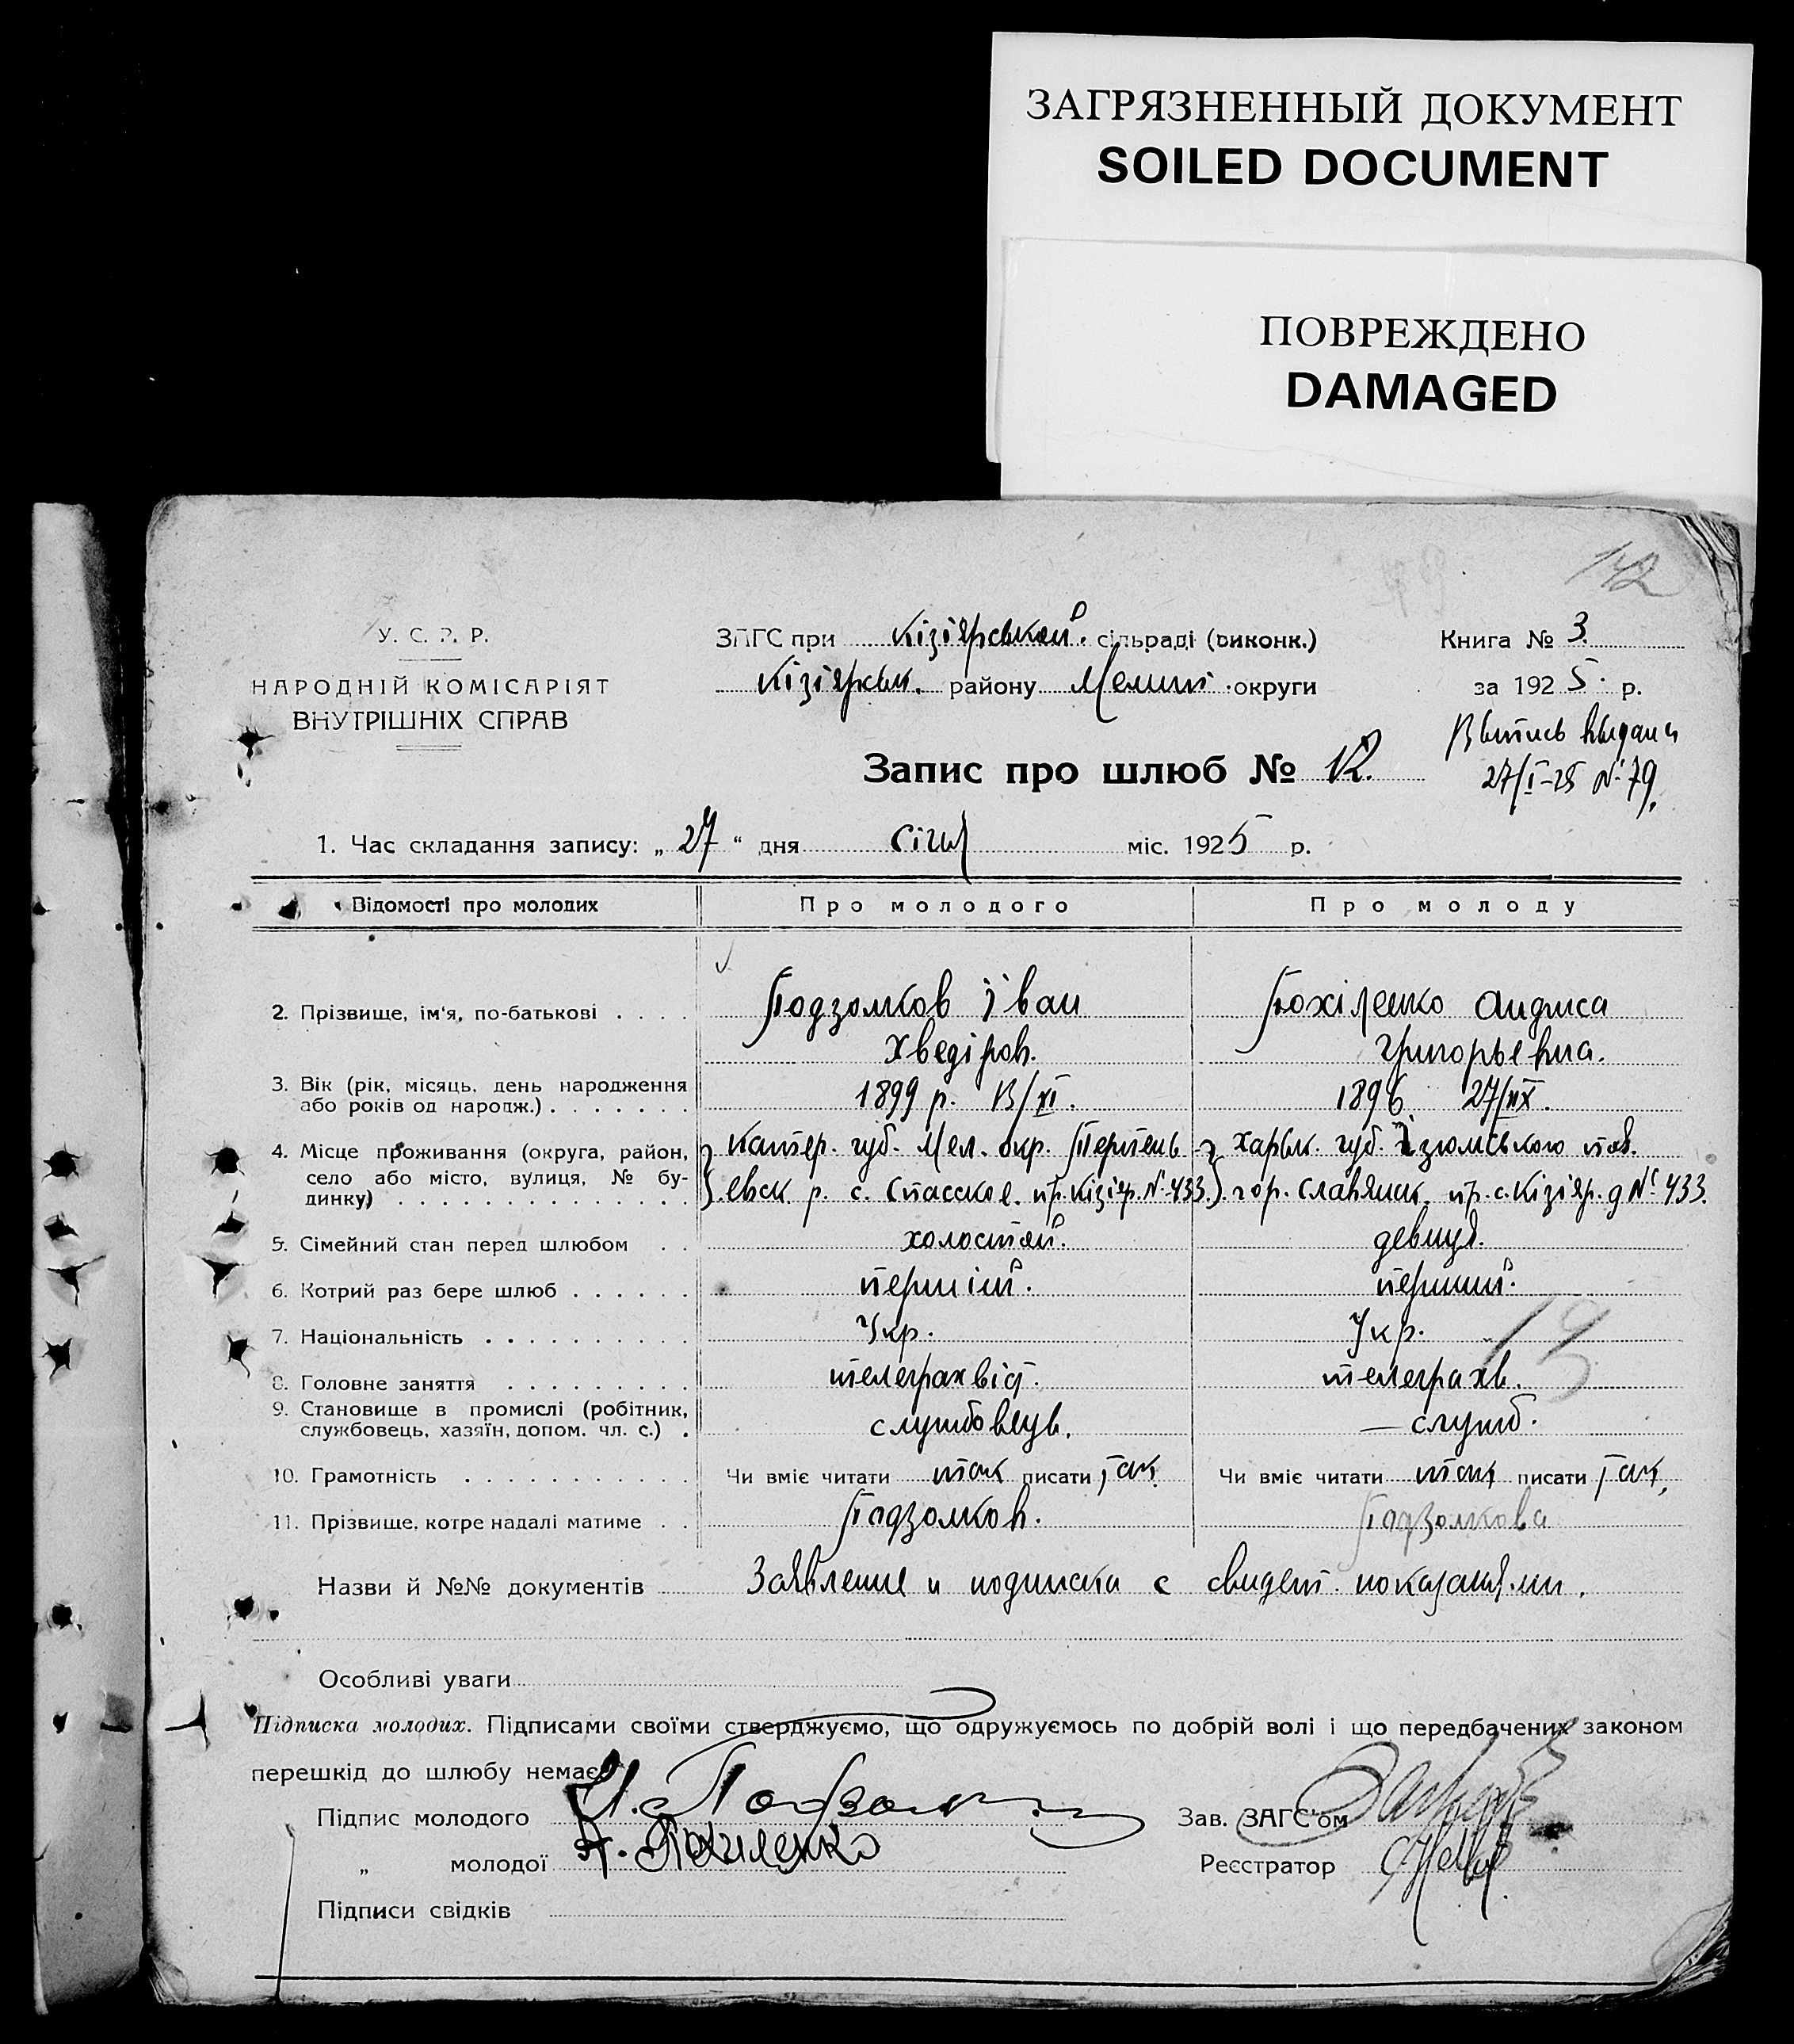 ЗАГРЯЗНЕННЫЙ ДОКУМЕНТ
SOILED DOCUMENT
ПОВРЕЖДЕНО
DAMAGED
142
У. С. Р. Р.
НАРОДНІЙ КОМІСАРІЯТ
ВНУТРІШНІХ СПРАВ
ЗАГС при Кізіярський сільраді (виконк.)
Кізіярськ. району Мелит. округи
Книга № 3.
за 1925. р.
Выпись выдана
27/I-25 № 79.
Запис про шлюб № 12.
1. Час складання запису: „ 27 “ дня січн міс. 1925 р.
Відомості про молодих Про молодого Про молоду
2. Прізвище, ім'я, по-батькові . . . . Подзолков Іван Похіленко
Хведіров. Григорьевна.
3. Вік (рік, місяць, день народження
або років од народж.) . . . . . . . 1899 р. 12/XI. 1896. 27/IX.
4. Місце проживання (округа, район,
село або місто, вулиця, № бу-
динку) . . . . . . . . . . . . . .
Катер. губ. Мел. окр. Терпень
евск. р. с. Спасское. пр. Кізіяр. № 433.
Харьк. губ. Ізюмського пов.
гор. Славянск. пр. с. Кізіяр. д № 433.
5. Сімейний стан перед шлюбом . . холостой. девиця.
6. Котрий раз бере шлюб . . . . . . перший. перший.
7. Національність . . . . . . . . . . Укр. Укр.
13
8. Головне заняття . . . . . . . . . телеграхвіст. телеграхв.
9. Становище в промислі (робітник,
службовець, хазяїн, допом. чл. с.) . службовець. — служб.
10. Грамотність . . . . . . . . . . . Чи вміє читати так писати так. Чи вміє читати так писати так.
11. Прізвище, котре надалі матиме . . Подзолков. Подзолкова
Назви й №№ документів Заявление и подписка с свидет. показаниями.
Особливі уваги
Підписка молодих. Підписами своїми стверджуємо, що одружуємось по добрій волі і що передбачених законом
перешкід до шлюбу немає.
Підпис молодого И. Подзолк
Зав. ЗАГС'ом
„ молодої А. Похиленко
Реєстратор
Підписи свідків